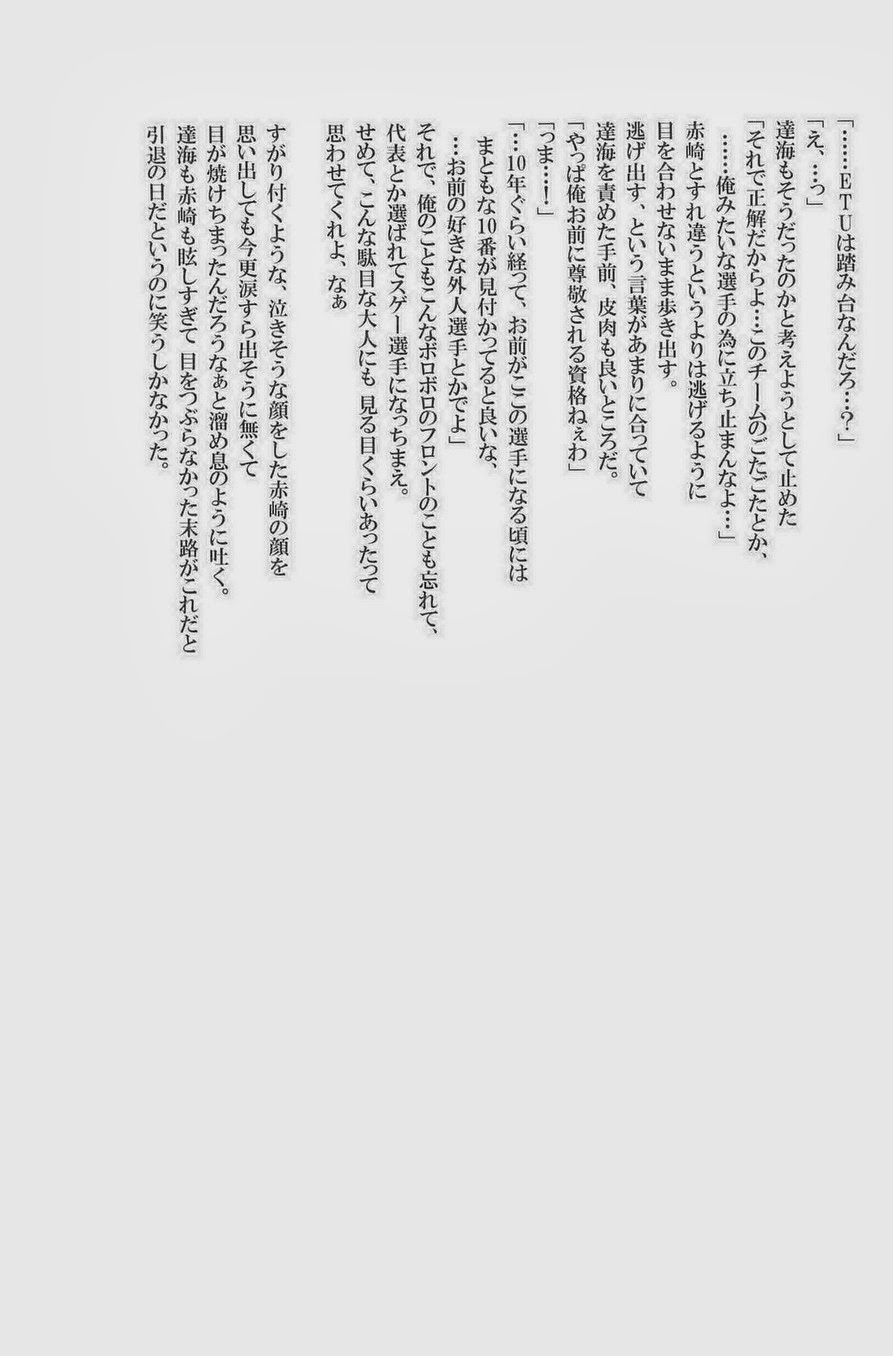 「……ＥＴＵは踏み台なんだろ…？」
「え、…っ」
達海もそうだったのかと考えようとして止めた
「それで正解だからよ…このチームのごたごたとか、
……俺みたいな選手の為に立ち止まんなよ…」
赤崎とすれ違うというよりは逃げるように
目を合わせないまま歩き出す。
逃げ出す、という言葉があまりに合っていて
達海を責めた手前、皮肉も良いところだ。
「やっぱ俺お前に尊敬される資格ねぇわ」
「っま…！」
「…10年ぐらい経って、お前がここの選手になる頃には
まともな10番が見付かってると良いな、
…お前の好きな外人選手とかでよ」
それで、俺のこともこんなボロボロのフロントのことも忘れて、
代表とか選ばれてスゲー選手になっちまえ。
せめて、こんな駄目な大人にも 見る目くらいあったって
思わせてくれよ、なぁ
すがり付くような、泣きそうな顔をした赤崎の顔を
思い出しても今更涙すら出そうに無くて
目が焼けちまったんだろうなぁと溜め息のように吐く。
達海も赤崎も眩しすぎて 目をつぶらなかった末路がこれだと
引退の日だというのに笑うしかなかった。